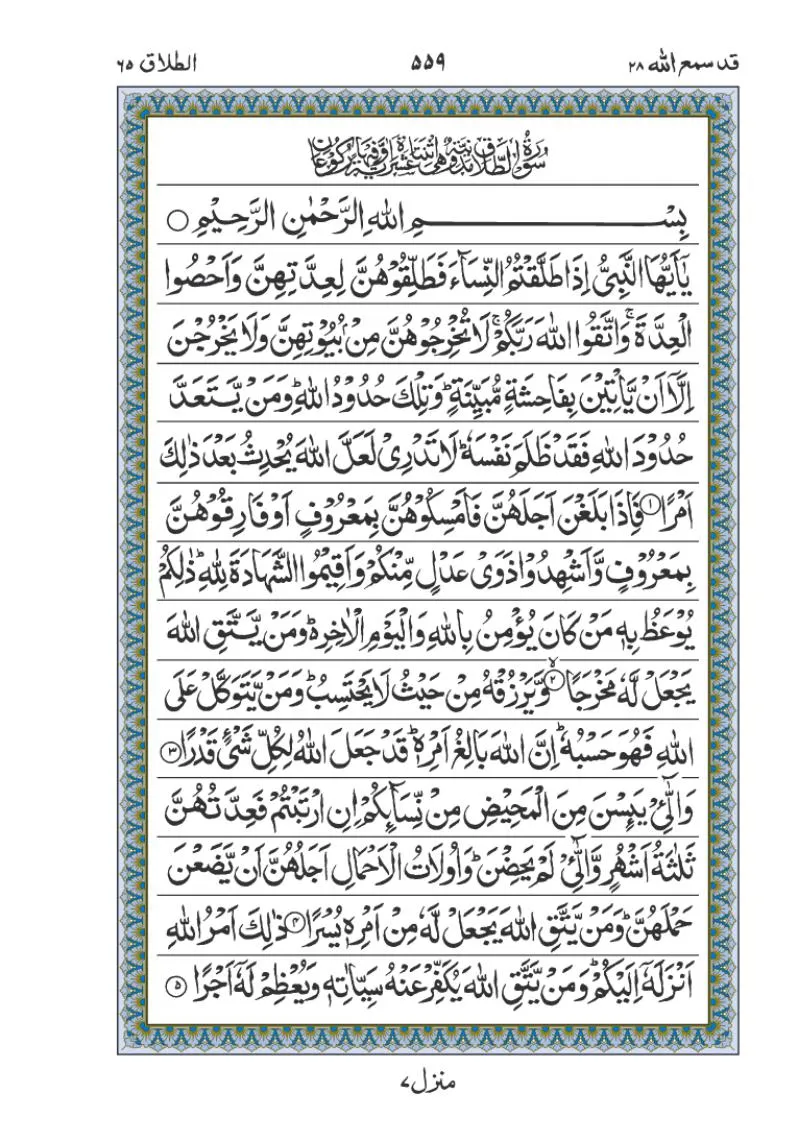 قد سمع الله ٢٨
٥٥٩
الطلاق ٦٥
سُوْرَةُ الطَّلَاقِ مَدَنِيَّةٌ وَّهِيَ اثْنَتَا عَشْرَةَ اٰيَةً وَّفِيْهَا رُكُوْعَانِ
بِسْمِ اللّٰهِ الرَّحْمٰنِ الرَّحِيْمِ ○
يٰٓاَيُّهَا النَّبِيُّ اِذَا طَلَّقْتُمُ النِّسَآءَ فَطَلِّقُوْهُنَّ لِعِدَّتِهِنَّ وَاَحْصُوا
الْعِدَّةَ ۚ وَاتَّقُوا اللّٰهَ رَبَّكُمْ ۚ لَا تُخْرِجُوْهُنَّ مِنْۢ بُيُوْتِهِنَّ وَلَا يَخْرُجْنَ
اِلَّاۤ اَنْ يَّاْتِيْنَ بِفَاحِشَةٍ مُّبَيِّنَةٍ ؕ وَتِلْكَ حُدُوْدُ اللّٰهِ ؕ وَمَنْ يَّتَعَدَّ
حُدُوْدَ اللّٰهِ فَقَدْ ظَلَمَ نَفْسَهٗ ؕ لَا تَدْرِىْ لَعَلَّ اللّٰهَ يُحْدِثُ بَعْدَ ذٰلِكَ
اَمْرًا ۝١ فَاِذَا بَلَغْنَ اَجَلَهُنَّ فَاَمْسِكُوْهُنَّ بِمَعْرُوْفٍ اَوْ فَارِقُوْهُنَّ
بِمَعْرُوْفٍ وَّاَشْهِدُوْا ذَوَىْ عَدْلٍ مِّنْكُمْ وَاَقِيْمُوا الشَّهَادَةَ لِلّٰهِ ؕ ذٰلِكُمْ
يُوْعَظُ بِهٖ مَنْ كَانَ يُؤْمِنُ بِاللّٰهِ وَالْيَوْمِ الْاٰخِرِ ؕ۬ وَمَنْ يَّتَّقِ اللّٰهَ
يَجْعَلْ لَّهٗ مَخْرَجًا ۙ۝٢ وَّيَرْزُقْهُ مِنْ حَيْثُ لَا يَحْتَسِبُ ؕ وَمَنْ يَّتَوَكَّلْ عَلَى
اللّٰهِ فَهُوَ حَسْبُهٗ ؕ اِنَّ اللّٰهَ بَالِغُ اَمْرِهٖ ؕ قَدْ جَعَلَ اللّٰهُ لِكُلِّ شَىْءٍ قَدْرًا ۝٣
وَالّٰٓـِٔىْ يَئِسْنَ مِنَ الْمَحِيْضِ مِنْ نِّسَآئِكُمْ اِنِ ارْتَبْتُمْ فَعِدَّتُهُنَّ
ثَلٰثَةُ اَشْهُرٍ وَّالّٰٓـِٔىْ لَمْ يَحِضْنَ ؕ وَاُولَاتُ الْاَحْمَالِ اَجَلُهُنَّ اَنْ يَّضَعْنَ
حَمْلَهُنَّ ؕ وَمَنْ يَّتَّقِ اللّٰهَ يَجْعَلْ لَّهٗ مِنْ اَمْرِهٖ يُسْرًا ۝٤ ذٰلِكَ اَمْرُ اللّٰهِ
اَنْزَلَهٗۤ اِلَيْكُمْ ؕ وَمَنْ يَّتَّقِ اللّٰهَ يُكَفِّرْ عَنْهُ سَيِّاٰتِهٖ وَيُعْظِمْ لَهٗۤ اَجْرًا ۝٥
منزل ٧